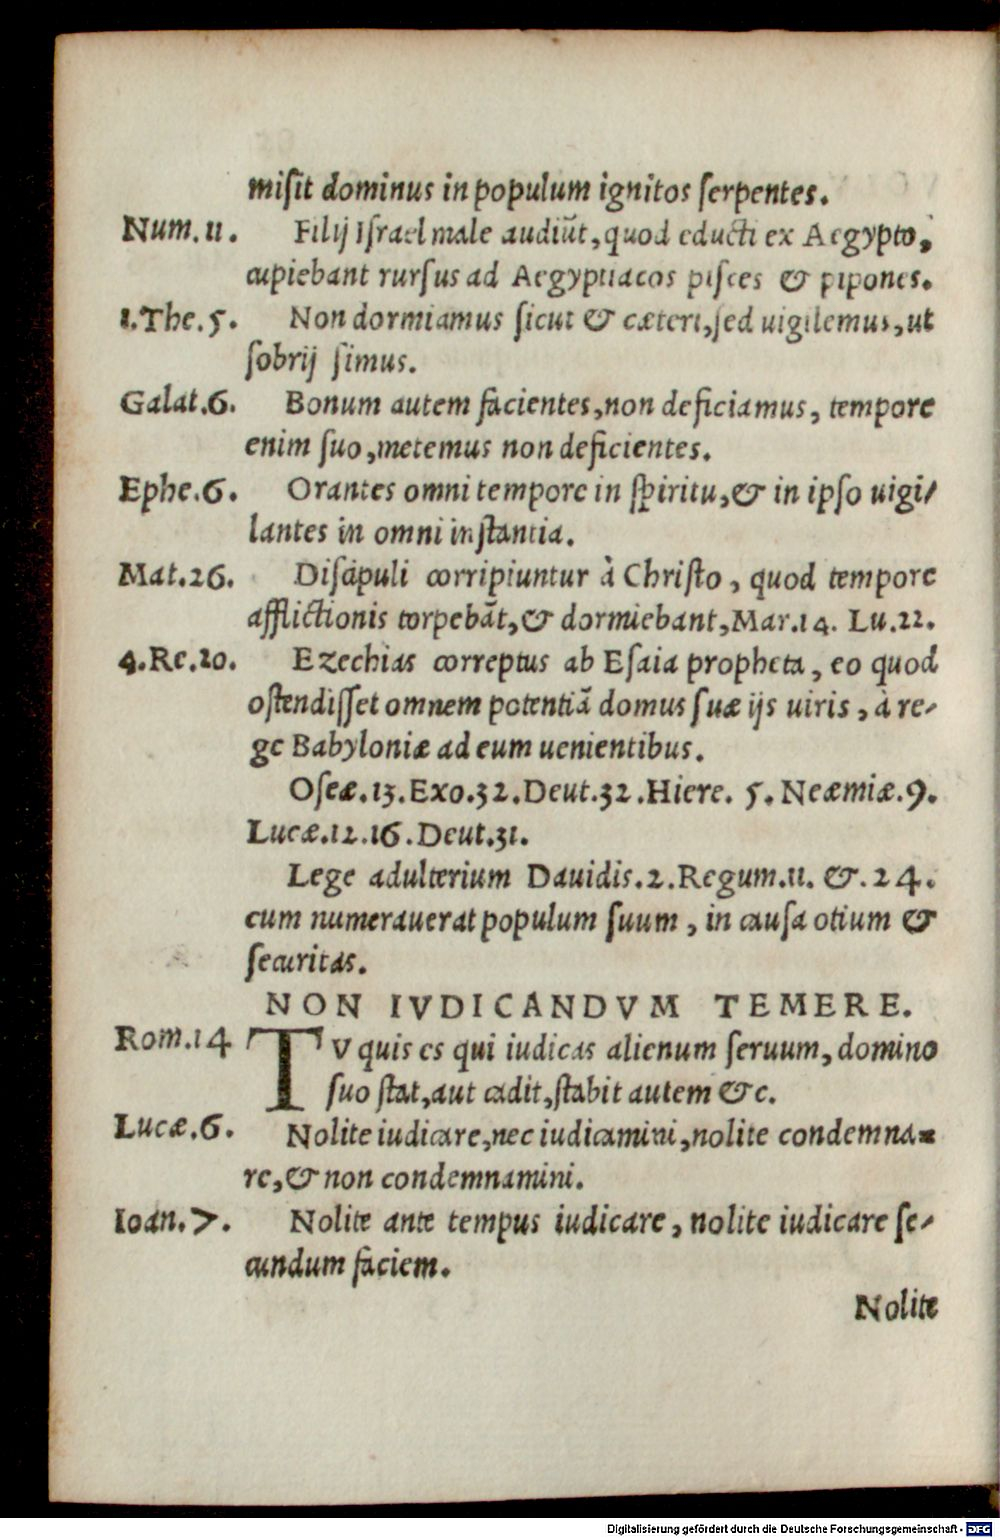 misit dominus in populum ignitos serpentes.
Num.11. Filij Israel male audiũt, quod educti ex Aegypto,
cupiebant rursus ad Aegyptiacos pisces & pipones.
1.The.5. Non dormiamus sicut & cæteri, sed uigilemus, ut
sobrij simus.
Galat.6. Bonum autem facientes, non deficiamus, tempore
enim suo, metemus non deficientes.
Ephe.6. Orantes omni tempore in spiritu, & in ipso uigi/
lantes in omni instantia.
Mat.26. Discipuli corripiuntur à Christo, quod tempore
afflictionis torpebãt, & dormiebant, Mar.14. Lu.22.
4.Re.20. Ezechias correptus ab Esaia propheta, eo quod
ostendisset omnem potentiã domus suæ ijs uiris, à re/
ge Babyloniæ ad eum uenientibus.
Oseæ.13. Exo.32. Deut.32. Hiere. 5. Neæmiæ.9.
Lucæ.12.16. Deut.31.
Lege adulterium Dauidis.2. Regum.11. &.24.
cum numerauerat populum suum, in causa otium &
securitas.
NON IVDICANDVM TEMERE.
Rom.14 TV quis es qui iudicas alienum seruum, domino
suo stat, aut cadit, stabit autem &c.
Lucæ.6. Nolite iudicare, nec iudicamini, nolite condemna=
re, & non condemnamini.
Ioan.7. Nolite ante tempus iudicare, nolite iudicare se/
cundum faciem.
Nolite
Digitalisierung gefördert durch die Deutsche Forschungsgemeinschaft - DFG